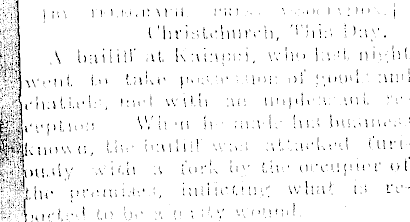 [BY TELEGRAPH PRESS ASSOCIATION.]
Christchurch, This Day.
A bailiff at Kaiapoi, who last night
went to take possession of goods and
chattels, met with an unpleasant re-
ception. When he made his business
known, the bailiff was attacked furi-
ously with a fork by the occupier of
the premises, inflicting what is re-
ported to be a nasty wound.